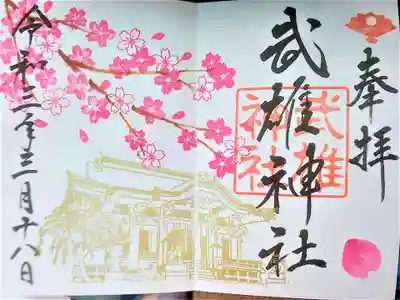 奉拝
武雄神社
武雄
神社
令和三年三月十八日